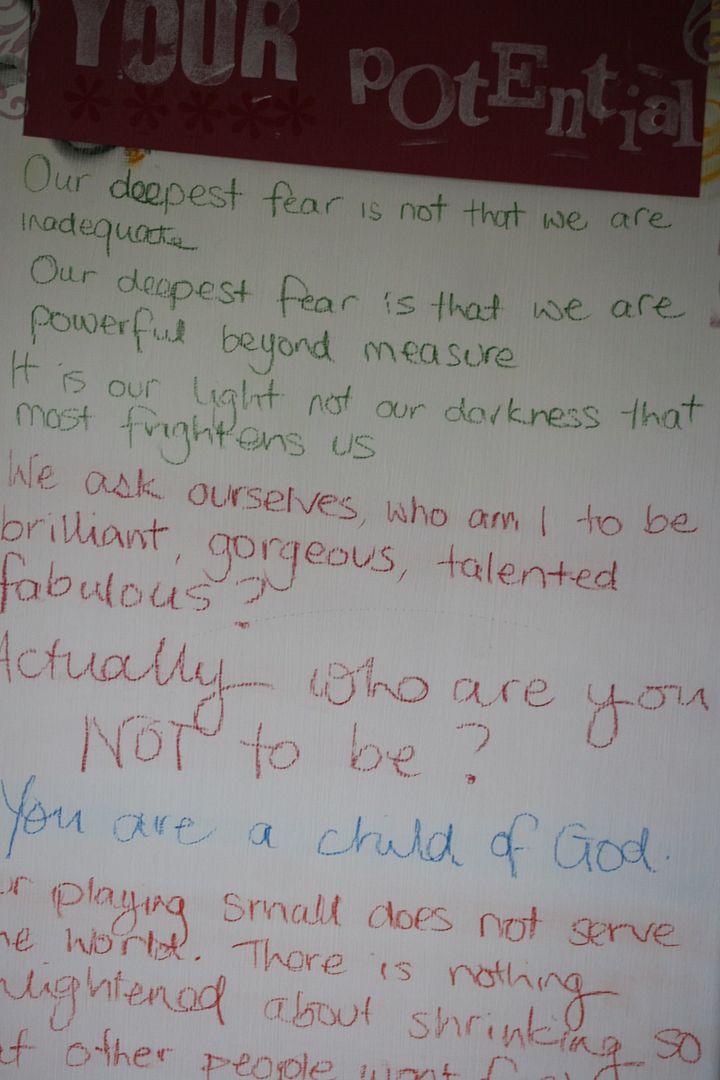 YOUR potEntial
Our deepest fear is not that we are
inadequate
Our deepest fear is that we are
powerful beyond measure
It is our light not our darkness that
most frightens us
We ask ourselves, who am I to be
brilliant, gorgeous, talented
fabulous?
Actually who are you
NOT to be?
You are a child of God.
playing small does not serve
world. There is nothing
about shrinking so
other people wont